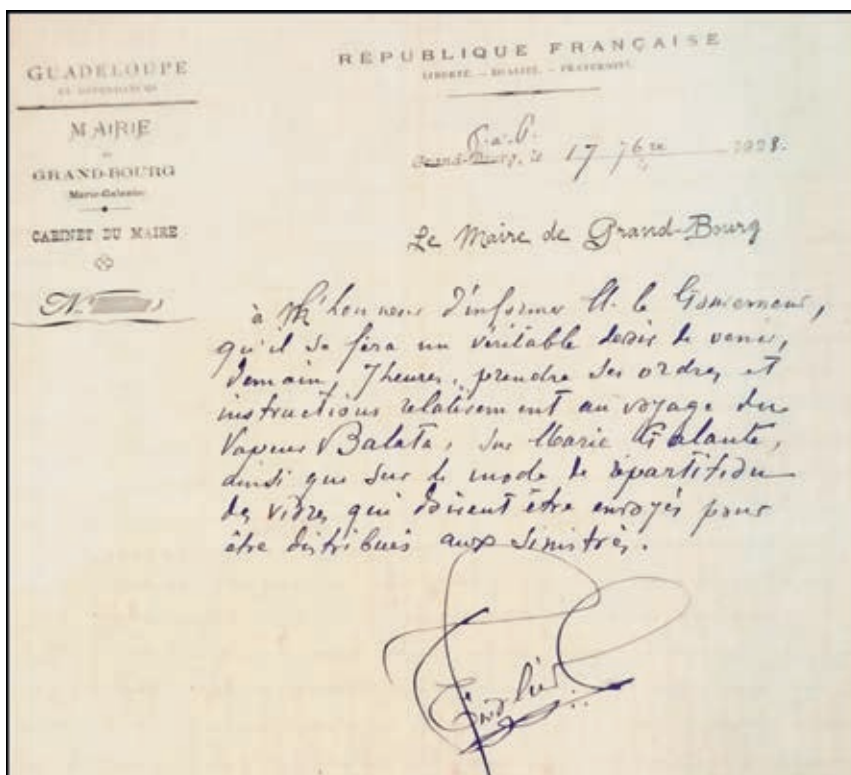 GUADELOUPE
ET DÉPENDANCES
MAIRIE
DE
GRAND-BOURG
Marie-Galante
CABINET DU MAIRE
N.
RÉPUBLIQUE FRANÇAISE
LIBERTÉ. — EGALITÉ. — FRATERNITÉ.
P. à P.
Grand-Bourg, le 17 7bre 1928.
Le Maire de Grand-Bourg
à l'honneur d'informer M. le Gouverneur,
qu'il se fera un véritable devoir de venir,
demain, 7 heures, prendre ses ordres et
instructions relativement au voyage du
Vapeur Balata, sur Marie Galante,
ainsi que sur le mode de répartition
des vivres qui doivent être envoyés pour
être distribués aux sinistrés.